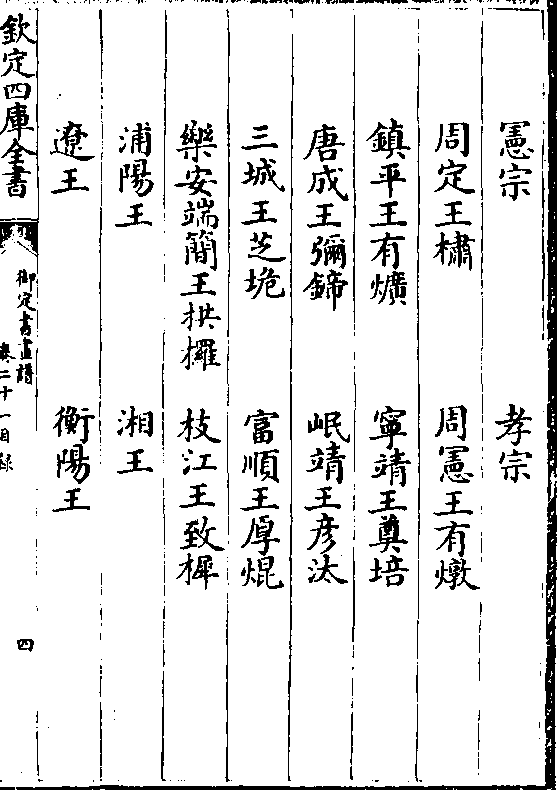 憲宗 孝宗
周定王橚 周憲王有燉
鎮平王有爌 寧靖王奠培
唐成王彌鍗 岷靖王彦汰
三城王芝垝 富順王厚焜
樂安端簡王拱欏 枝江王致樨
浦陽王 湘王
遼王 衡陽王
欽定四庫全書 御定書畫譜 卷二十一目録 四